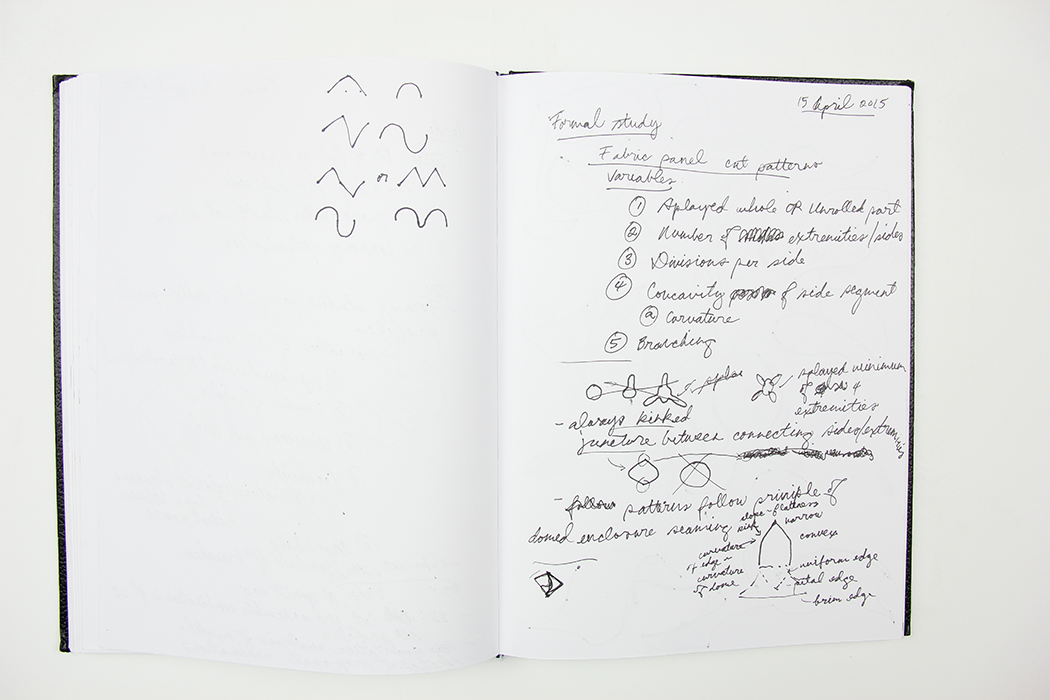 or
15 April 2015
Formal study
Fabric panel cut patterns
Variables
① Splayed whole OR Unrolled part
② Number of extremities/sides
③ Divisions per side
④ Concavity of side segment
ⓐ Curvature
⑤ Branching
splayed minimum
of 4
extremities
- always kinked
juncture between connecting sides/extremities
- patterns follow priniple of
domed enclosure seaming
slope ~ flatness
narrow
convex
curvature
of edge ~
curvature
of dome
uniform edge
petal edge
brim edge